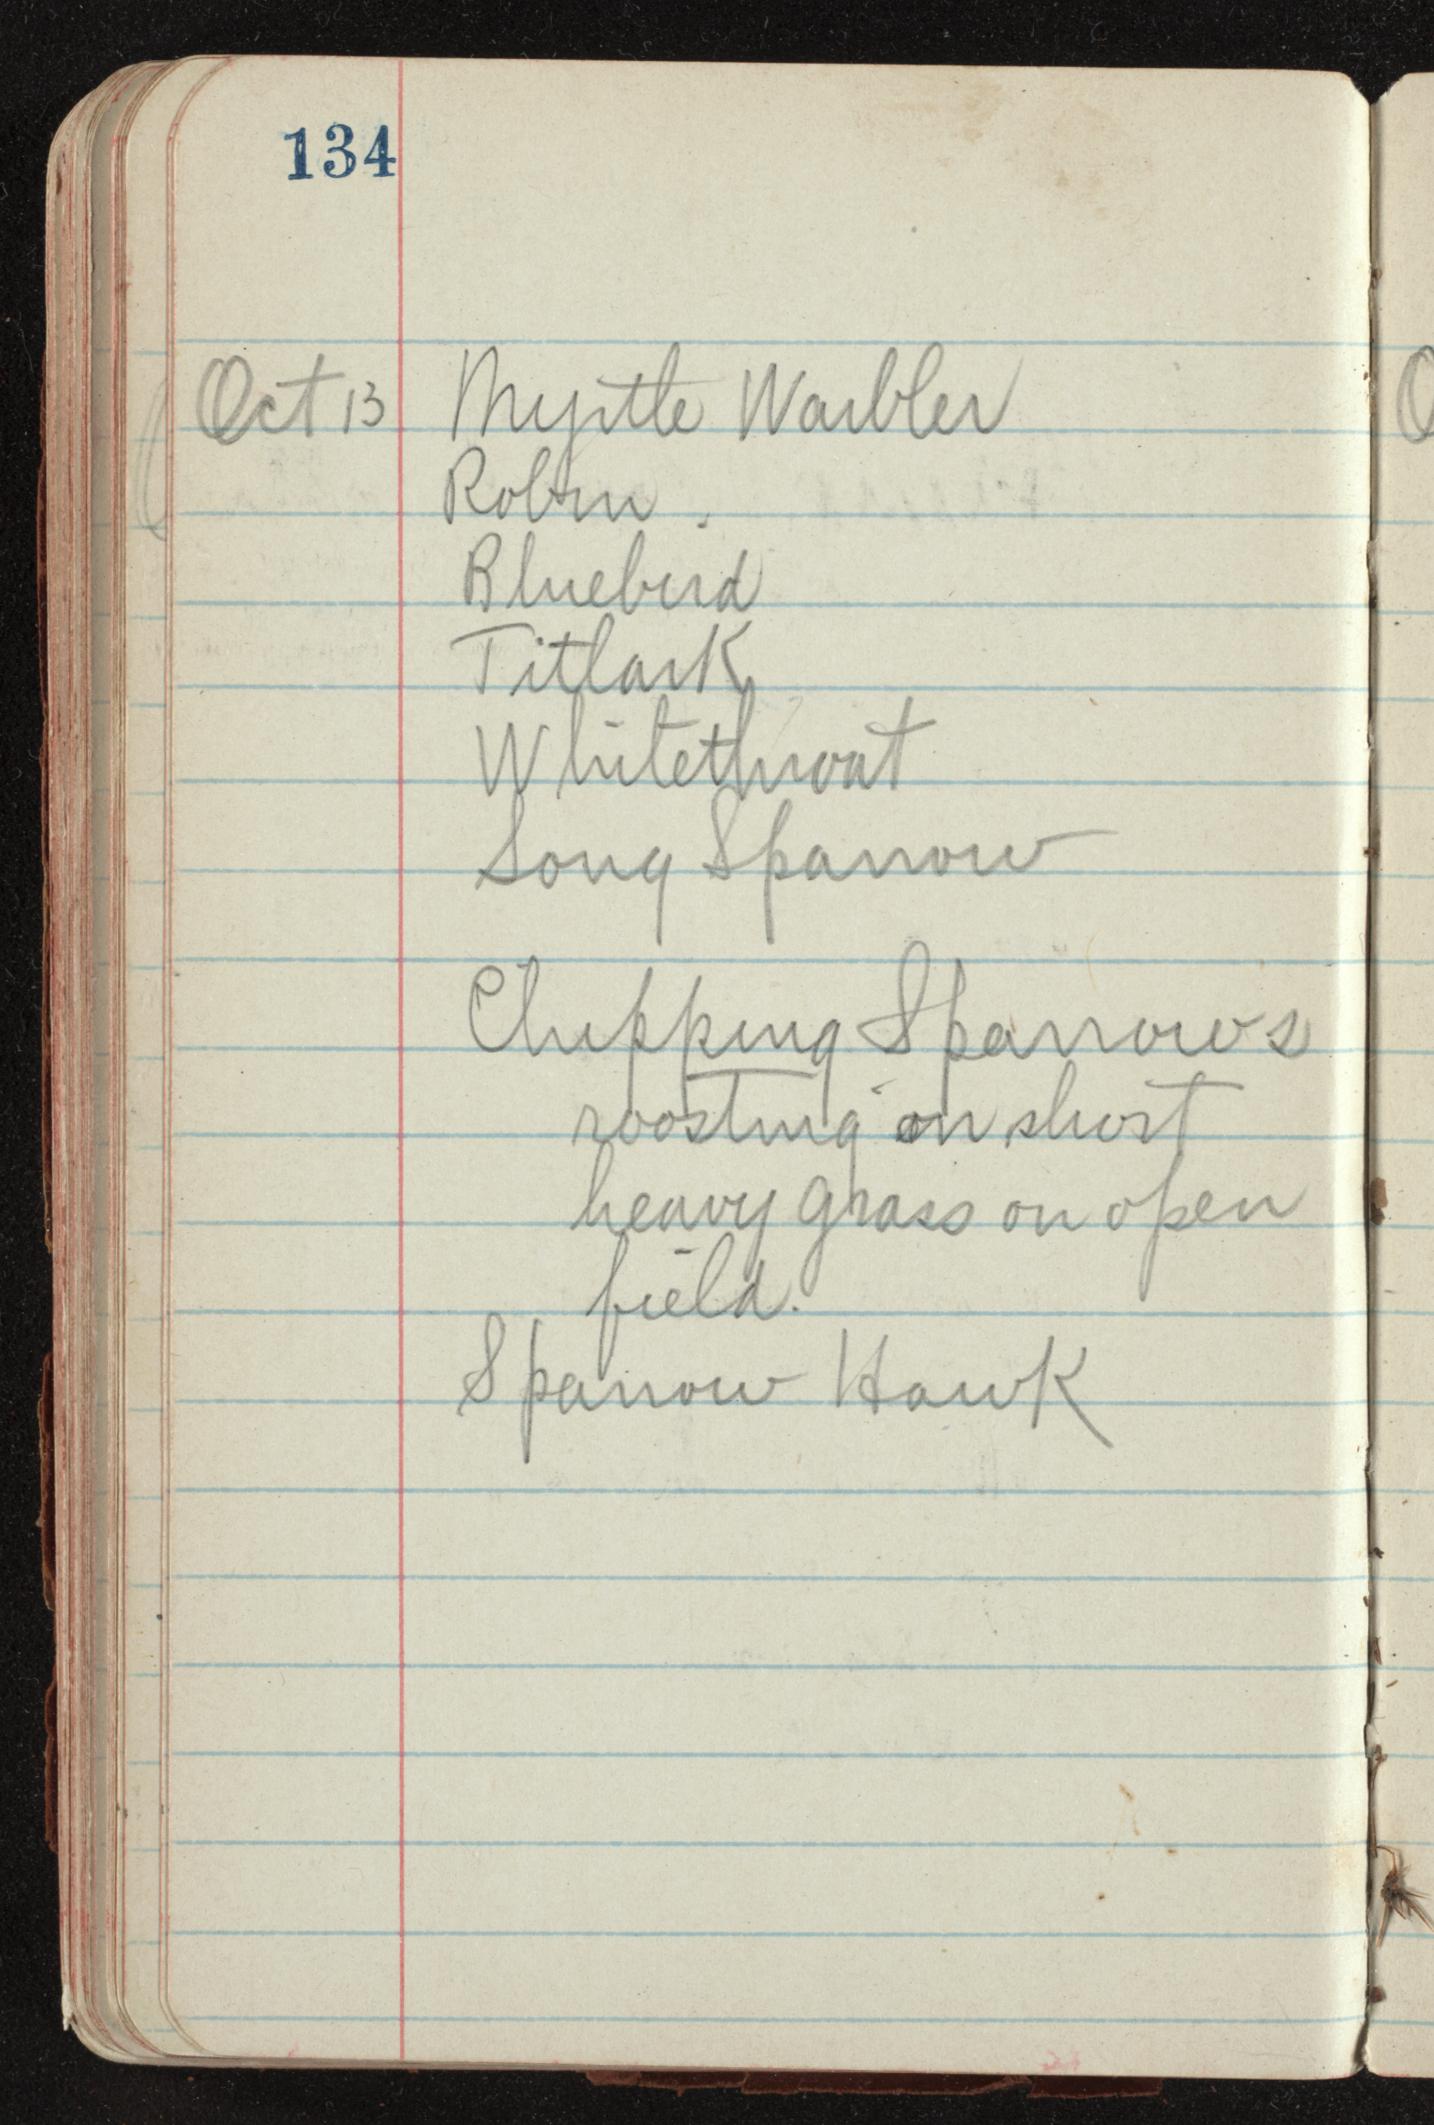 134
Oct 13 Myrtle Warbler
Robin.
Bluebird
Titlark
Whitethroat
Song Sparrow
Chipping Sparrows
roosting on short
heavy grass on open
field.
Sparrow Hawk